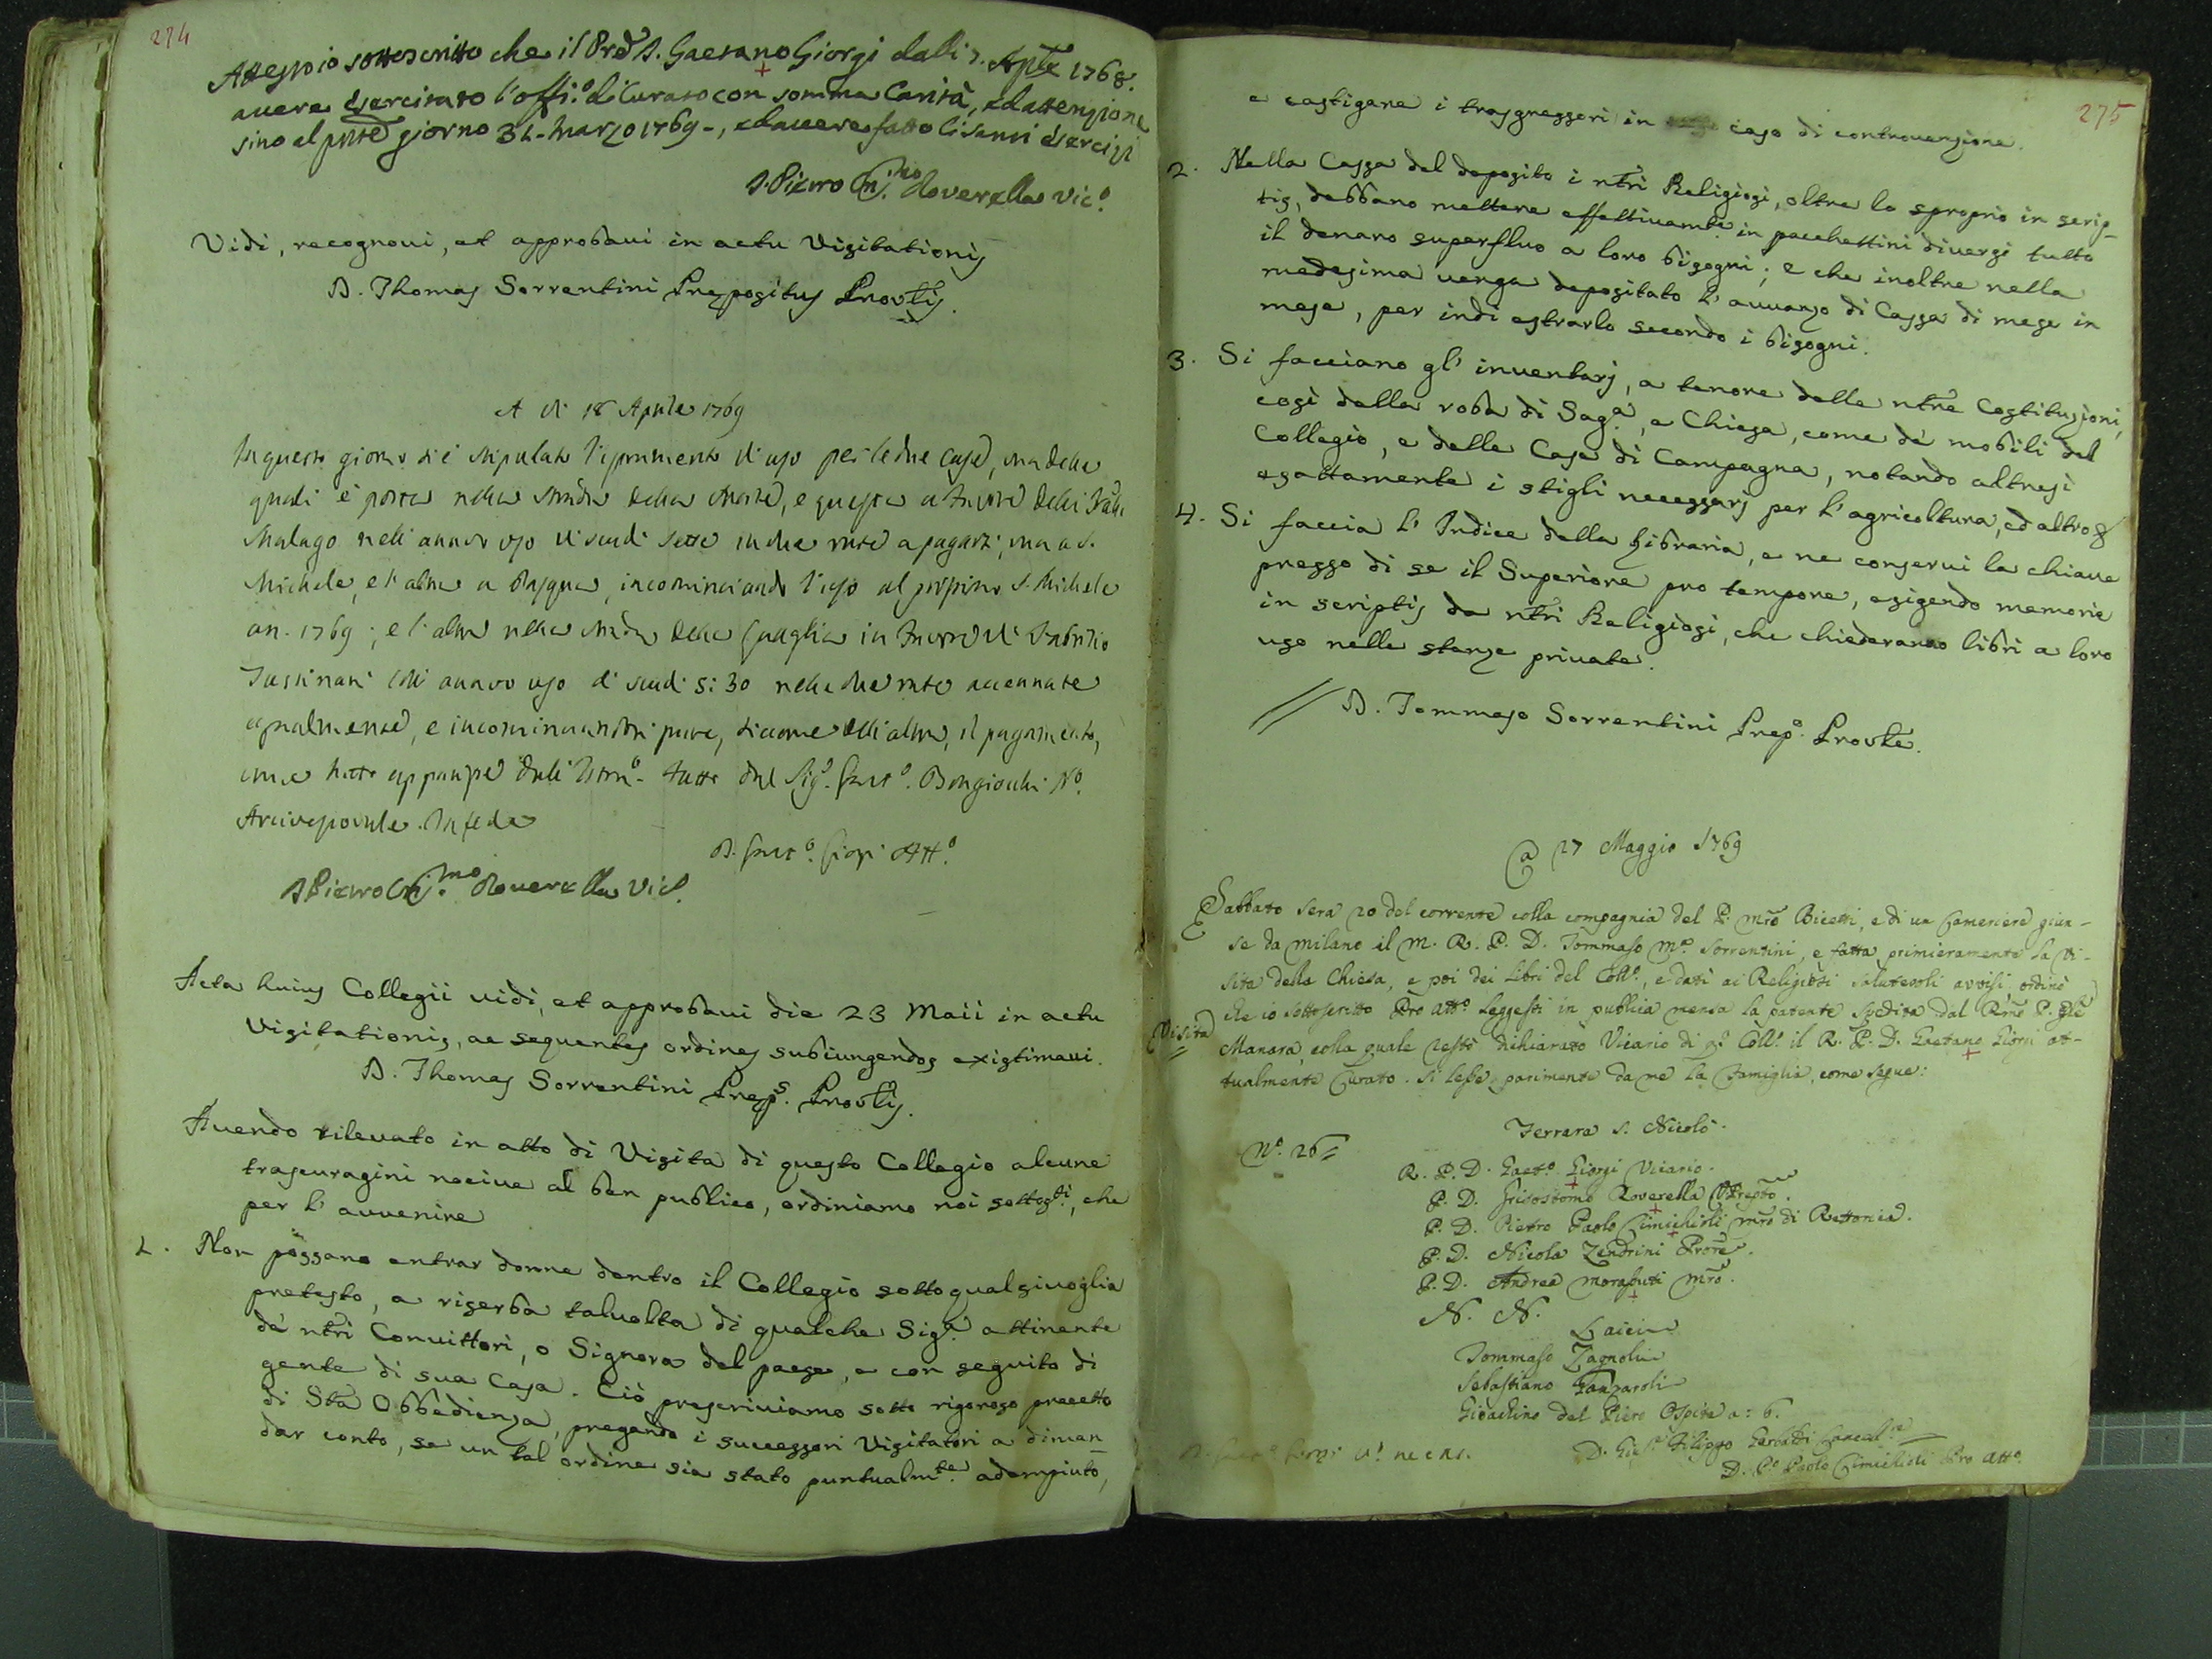 274
Attesto io sottoscritto che il Pred. D. Gaetano Giorgi dalli 7. Aple 1768.
avere esercitato l'offi.o di Curato con somma Carità, ed attenzione
sino al pnte giorno 31. Marzo 1769., ed avere fatto li Santi esercizi
D. Pietro Gri.mo Roverella Vic.o
Vidi, recognovi, et approbavi in actu Visitationis
D. Thomas Sorrentini Prepositus Provlis.
A di 18 Aprile 1769
In questo giorno si è stipulato l'istrumento d'uso per le due case, una delle
quali è posta nella strada della, e questa a favore delli
Malago nell'annuo uso di scudi sette in due rate a pagarsi, una a S.
Michele, e l'altra a Pasqua, incominciando l'uso al prossimo S. Michele
an. 1769; e l'altra nella strada della Quaglia in favore di Fabrizio
nell'annuo uso di scudi 5:30 nelle due rate accennate
egualmente, e incominciandosi pure, siccome dell'altra, il pagamento,
come tutto apparisce dall'Istro. fatto dal Sig.r Gaet.o No.
Arcivescovale. In fede
D. Gaet.o Giorgi Att.o
D. Pietro Gri.mo Roverella Vic.
Acta huius Collegii vidi, et approbavi die 23 Maii in actu
Visitationis, ac sequentes ordines subiungendos existimavi.
D. Thomas Sorrentini Prep.s Provlis.
Avendo rilevato in atto di Visita di questo Collegio alcune
trascuragini nocive al ben publico, ordiniamo noi sottosti, che
per l'avvenire
1. Non possano entrar donne dentro il Collegio sotto qualsivoglia
pretesto, a riserba talvolta di qualche Sig.a attinente
de' ntri Convittori, o Signora del paese, e con seguito di
gente di sua Casa. Ciò prescriviamo sotto rigoroso precetto
di Sta Obbedienza, pregando i successori Visitatori a diman-
dar conto, se un tal ordine sia stato puntualmte adempiuto,
275
e castigare i trasgressori in caso di controvenzione.
2. Nella Cassa del deposito i ntri Religiosi, oltre lo sproprio in scrip-
tis, debbano mettere effettivamte in pacchettini diversi tutto
il denaro superfluo a loro bisogni; e che inoltre nella
medesima venga depositato l'avvanzo di Cassa di mese in
mese, per indi estrarlo secondo i bisogni.
3. Si facciano gl'inventarj, a tenore delle ntre Costituzioni,
così della roba di Sag.a, e Chiesa, come de' mobili del
Collegio, e delle Case di Campagna, notando altresì
esattamente i stigli necessarj per l'agricoltura, ed altro
4. Si faccia l'Indice della Libraria, e ne conservi la chiave
presso di se il Superiore pro tempore, esigendo memorie
in scriptis da ntri Religiosi, che chiederanno libri a loro
uso nelle stanze private.
D. Tommaso Sorrentini Prep.o Provle.
a 27 Maggio 1769
Sabbato sera 20 del corrente colla compagnia del P. mro Bicetti, e di un Cameriere giun-
se da Milano il M. R. P. D. Tommaso M.a Sorrentini, e fatta primieramente la Vi-
sita della Chiesa, e poi dei Libri del Coll.o, e dati ai Religiosi salutevoli avvisi, ordinò
che io sottoscritto Pro att.o leggessi in publica mensa la patente spedita dal Rmo P. Gle
Visita
Manara, colla quale restò dichiarato Vicario di q.o Coll.o il R. P. D. Gaetano Giorgi at-
tualmente Curato. Si lesse parimente da me la Famiglia, come segue:
Ferrara S. Nicolò.
N.o 26
R. P. D. Gaet.o Giorgi Vicario.
P. D. Grisostomo Roverella
P. D. Pietro Paolo Cimichioli mro di Rettorica.
P. D. Nicola Zendrini Prore.
P. D. Andrea Morasuti mro.
N. N.
Laici
Tommaso Zagnolini
Sebastiano Panzaroli
Gioachino del Piero Ospite a: 6.
D. Gius.e Filippo Cancell.re
D. P.o Paolo Cimichioli Pro Att.o